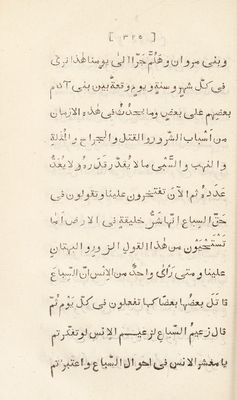 [ ٣٢٥ ]
وبنى مروان وهلمّ جرّا الى يومنا هذا ترى
فى كلّ شهر وسنة ويوم وقعة بين بنى آدم
بعضهم على بعض وما يحدُث فى هذه الازمان
من اسباب الشرور والقتل والجراح والمثلة
والنهب والسَّبْى ما لا يُقدَّر قدره ولا يُعَدُّ
عَدده ثم الآن تفتخرون علينا وتقولون فى
حقّ السباع انّها شرُّ خليقةٍ فى الارض أما
تَسْتَحْيُونَ من هذا القول الزور والبهتان
علينا ومتى رَأى واحدٌ من الانس انّ السباع
قاتل بعضها بعضًا كما تفعلون فى كلّ يَوْم ثمّ
قال زعيمُ السّباع لزعيم الانس لو تفكّرتم
يا معشر الانس فى احوال السّباع واعتبرتم